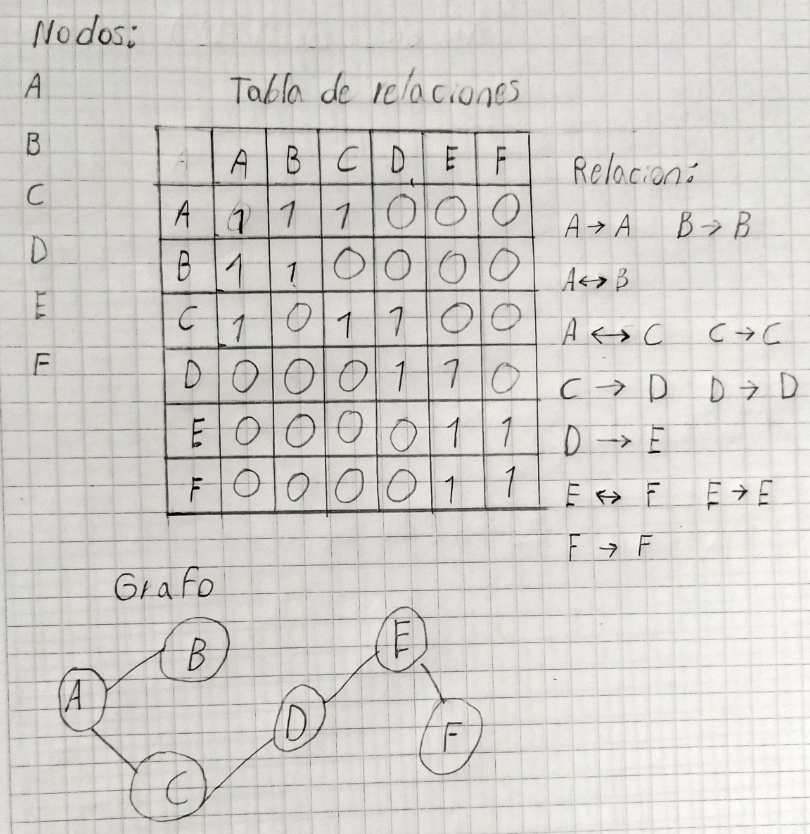 Nodos:
A
B
C
D
E
F
Tabla de relaciones
A B C D E F
A 1 1 1 0 0 0
B 1 1 0 0 0 0
C 1 0 1 1 0 0
D 0 0 0 1 1 0
E 0 0 0 0 1 1
F 0 0 0 0 1 1
Relacion:
A → A B → B
A ↔ B
A ↔ C C → C
C → D D → D
D → E
E ↔ F E → E
F → F
Grafo
A
B
C
D
E
F